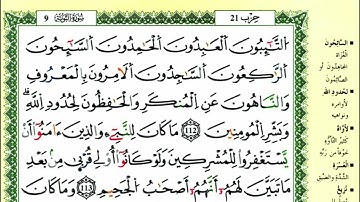 حزب 21
سورة التوبة 9
اَلتَّٰٓئِبُونَ اَلْعَٰبِدُونَ اَلْحَٰمِدُونَ اَلسَّٰٓئِحُونَ
اَلرَّٰكِعُونَ اَلسَّٰجِدُونَ اَلَامِرُونَ بِالْمَعْرُوفِ
وَالنَّاهُونَ عَنِ اِلْمُنكَرِ وَالْحَٰفِظُونَ لِحُدُودِ اِللَّهِ
وَبَشِّرِ اِلْمُومِنِينَ 112 مَا كَانَ لِلنَّبِےٓءِ وَالذِينَ ءَامَنُوٓاْ أَنْ
يَّسْتَغْفِرُواْ لِلْمُشْرِكِينَ وَلَوْ كَانُوٓاْ أُوْلِے قُرْبٜىٰ مِنۢ بَعْدِ
مَا تَبَيَّنَ لَهُمُۥٓ أَنَّهُمُۥٓ أَصْحَٰبُ اُلْجَحِيمِ 113 وَمَا كَانَ
السَّائِحُونَ
الغُزَاةُ
المجاهدون أو
الصائمون
لحدود الله
لأوامره
ونواهيه
لأوّاهٌ
كثيرُ التأوُّه
خوفاً من ربّه
العسرة
الشدّة والضّيق